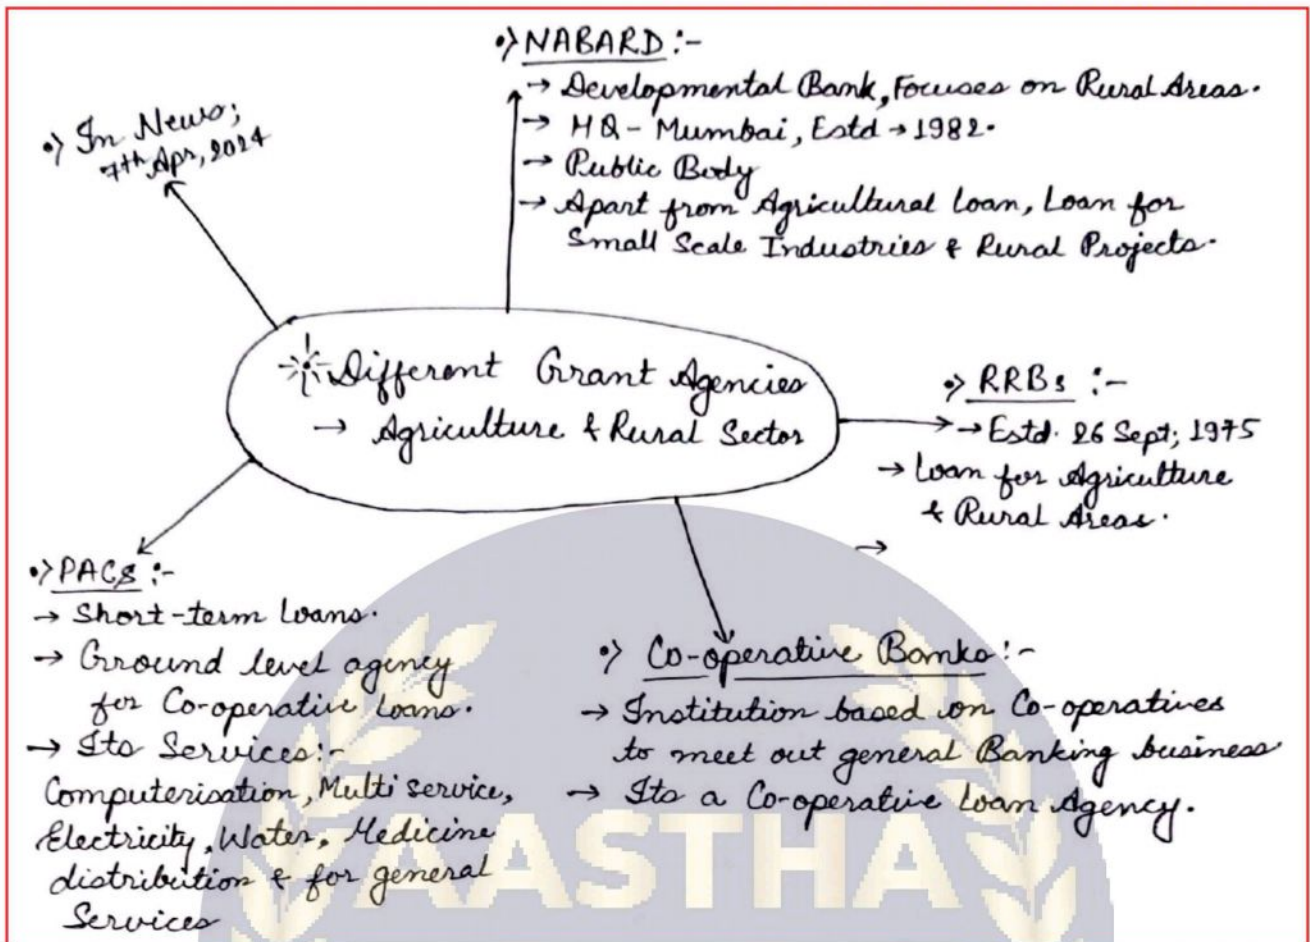 •> In News;
7th Apr, 2024
•> NABARD :-
→ Developmental Bank, Focuses on Rural Areas.
→ HQ - Mumbai, Estd → 1982.
→ Public Body
→ Apart from Agricultural Loan, Loan for
Small Scale Industries & Rural Projects.
Different Grant Agencies
→ Agriculture & Rural Sector
•> RRBs :-
→ Estd. 26 Sept; 1975
→ Loan for Agriculture
& Rural Areas.
→
•> PACS :-
→ Short-term Loans.
→ Ground level agency
for Co-operative Loans.
→ Its Services:-
Computerisation, Multi service,
Electricity, Water, Medicine
distribution & for general
Services
•> Co-operative Banks:-
→ Institution based on Co-operatives
to meet out general Banking business
→ Its a Co-operative Loan Agency.
AASTHA